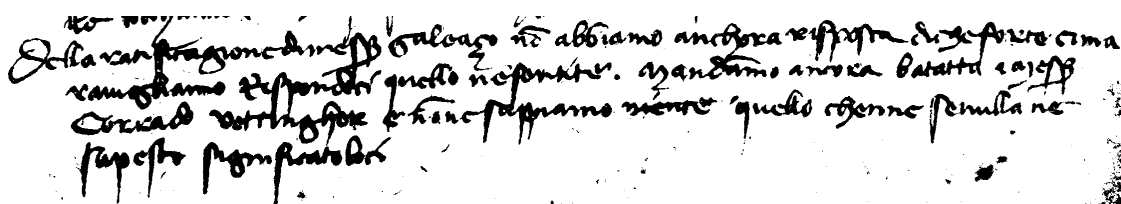 Della ratificagione di mess Galeaço nō abbiamo anchora risposta di che forte ci ma
ravigliamo Rispondeci quello ne sentite. Mandamo ancora batatta a mess
Corrado vettinghot e nōne sappiamo niente quello chenne se nulla ne
sapeste significatoloci